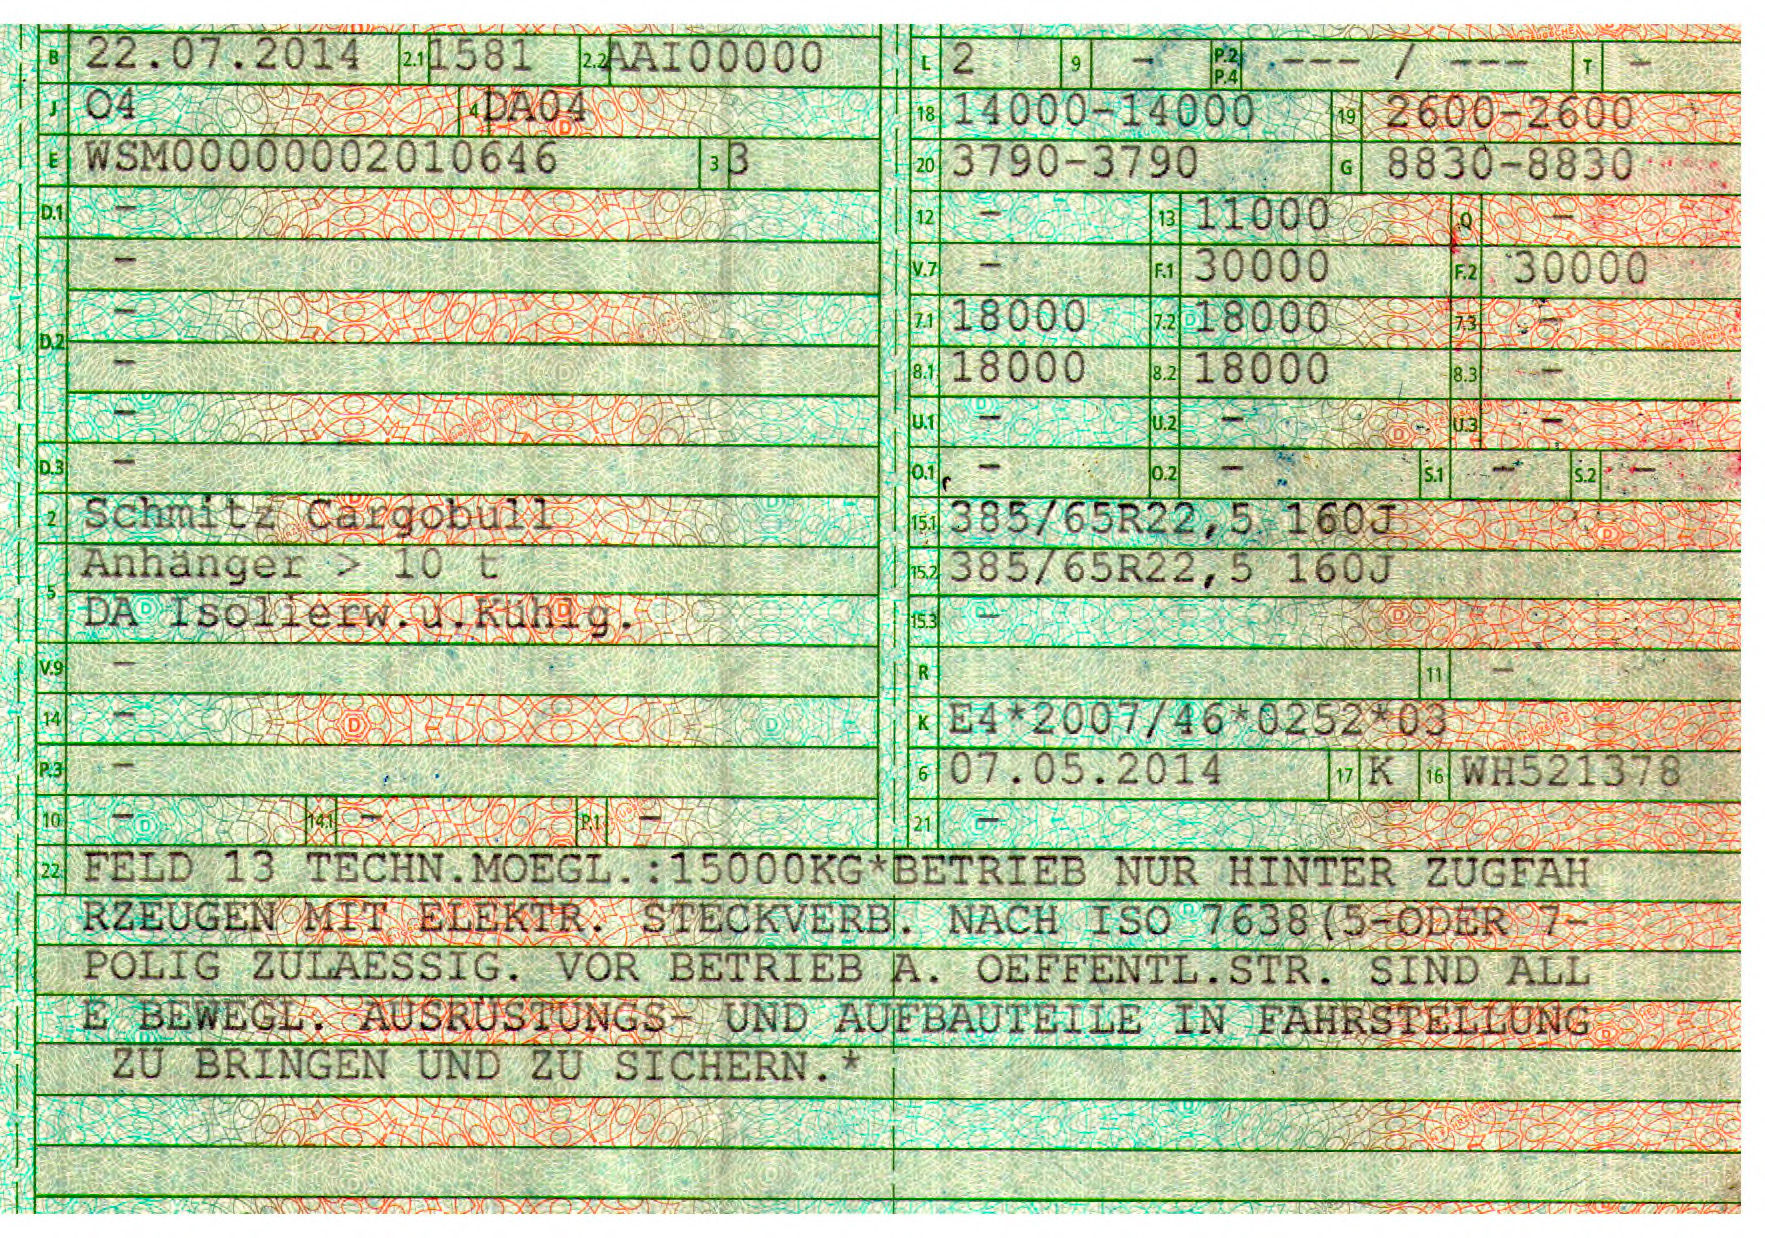 B 22.07.2014 2.1 1581 2.2 AAI00000
J O4 4 DA04
E WSM00000002010646 3 3
D.1 -
-
-
D.2
-
-
D.3 -
2 Schmitz Cargobull
Anhänger > 10 t
5
DA Isolierw.u.Kühlg.
V.9 -
14 -
P.3 -
10 - 14.1 - P.1 -
L 2 9 - P.2 P.4 --- / --- T -
18 14000-14000 19 2600-2600
20 3790-3790 G 8830-8830
12 - 13 11000 Q -
V.7 - F.1 30000 F.2 30000
7.1 18000 7.2 18000 7.3 -
8.1 18000 8.2 18000 8.3 -
U.1 - U.2 - U.3 -
O.1 - O.2 - S.1 - S.2 -
15.1 385/65R22,5 160J
15.2 385/65R22,5 160J
15.3 -
R 11 -
K E4*2007/46*0252*03
6 07.05.2014 17 K 16 WH521378
21 -
22 FELD 13 TECHN.MOEGL.:15000KG*BETRIEB NUR HINTER ZUGFAH
RZEUGEN MIT ELEKTR. STECKVERB. NACH ISO 7638(5-ODER 7-
POLIG ZULAESSIG. VOR BETRIEB A. OEFFENTL.STR. SIND ALL
E BEWEGL. AUSRÜSTUNGS- UND AUFBAUTEILE IN FAHRSTELLUNG
ZU BRINGEN UND ZU SICHERN.*